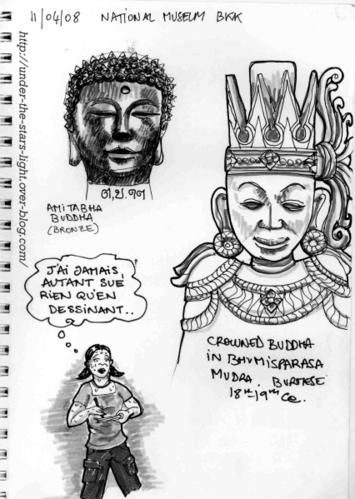 11/04/08 NATIONAL MUSEUM BKK
http://under-the-stars-light.over-blog.com/
AMITABHA
BUDDHA
(BRONZE)
J'AI JAMAIS
AUTANT SUÉ
RIEN QU'EN
DESSINANT..
CROWNED BUDDHA
IN BHUMISPARASA
MUDRA. BURMESE
18TH-19TH Ce.